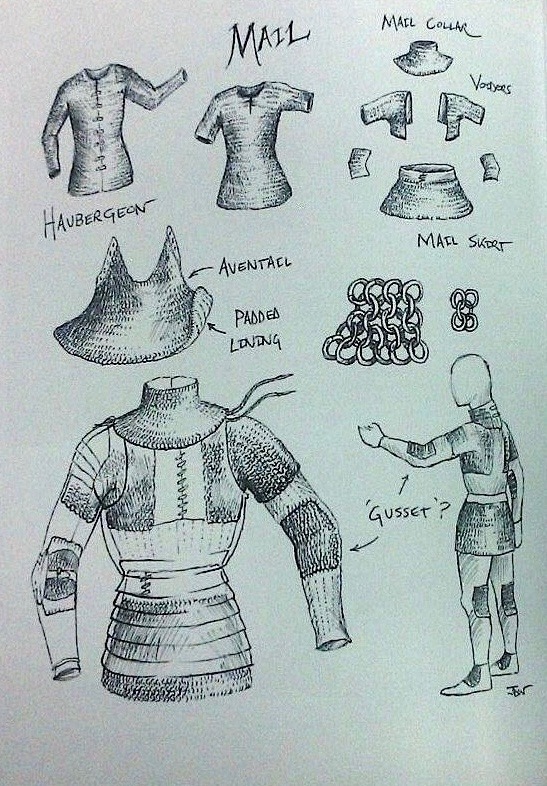 MAIL
MAIL COLLAR
VOIDERS
HAUBERGEON
MAIL SKIRT
AVENTAIL
PADDED
LINING
'GUSSET'?